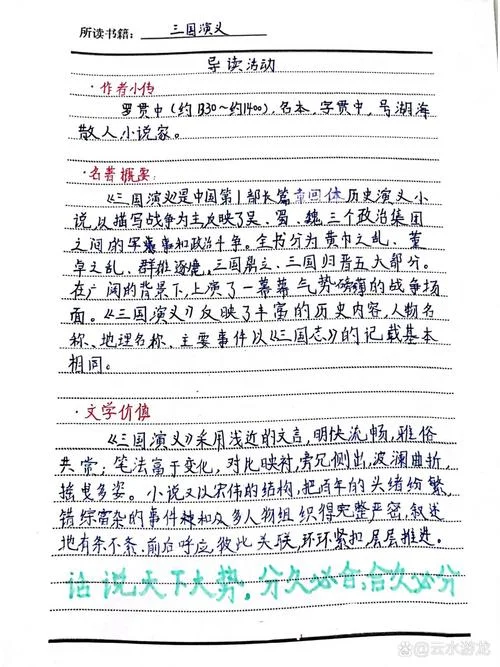 所读书籍: 三国演义
导读活动
·作者小传
罗贯中(约1330~约1400),名本,字贯中,号湖海
散人小说家。
·名著概要:
《三国演义》是中国第1部长篇章回体历史演义小
说,以描写战争为主反映了吴、蜀、魏三个政治集团
之间的军事和政治斗争。全书分为黄巾之乱、董
卓之乱、群雄逐境,三国鼎立、三国归晋五大部分。
在广阔的背景下,上演了一幕幕气势磅礴的战争场
面。《三国演义》反映了丰富的历史内容,人物名
称、地理名称、主要事件以《三国志》的记载基本
相同。
·文学价值
《三国演义》采用浅近的文言,明快流畅,雅俗
共赏;笔法富于变化,对比映衬,旁冗侧出,波澜曲折,
摇曳多姿。小说又以宏伟的结构,把百年的头绪纷繁,
错综杂的事件和众多人物组织得完整严密,叙述
地有条不紊,前后呼应,彼此关联,环环紧扣层层推进。
话说天下大势,分久必合;合久必分
@云水游龙